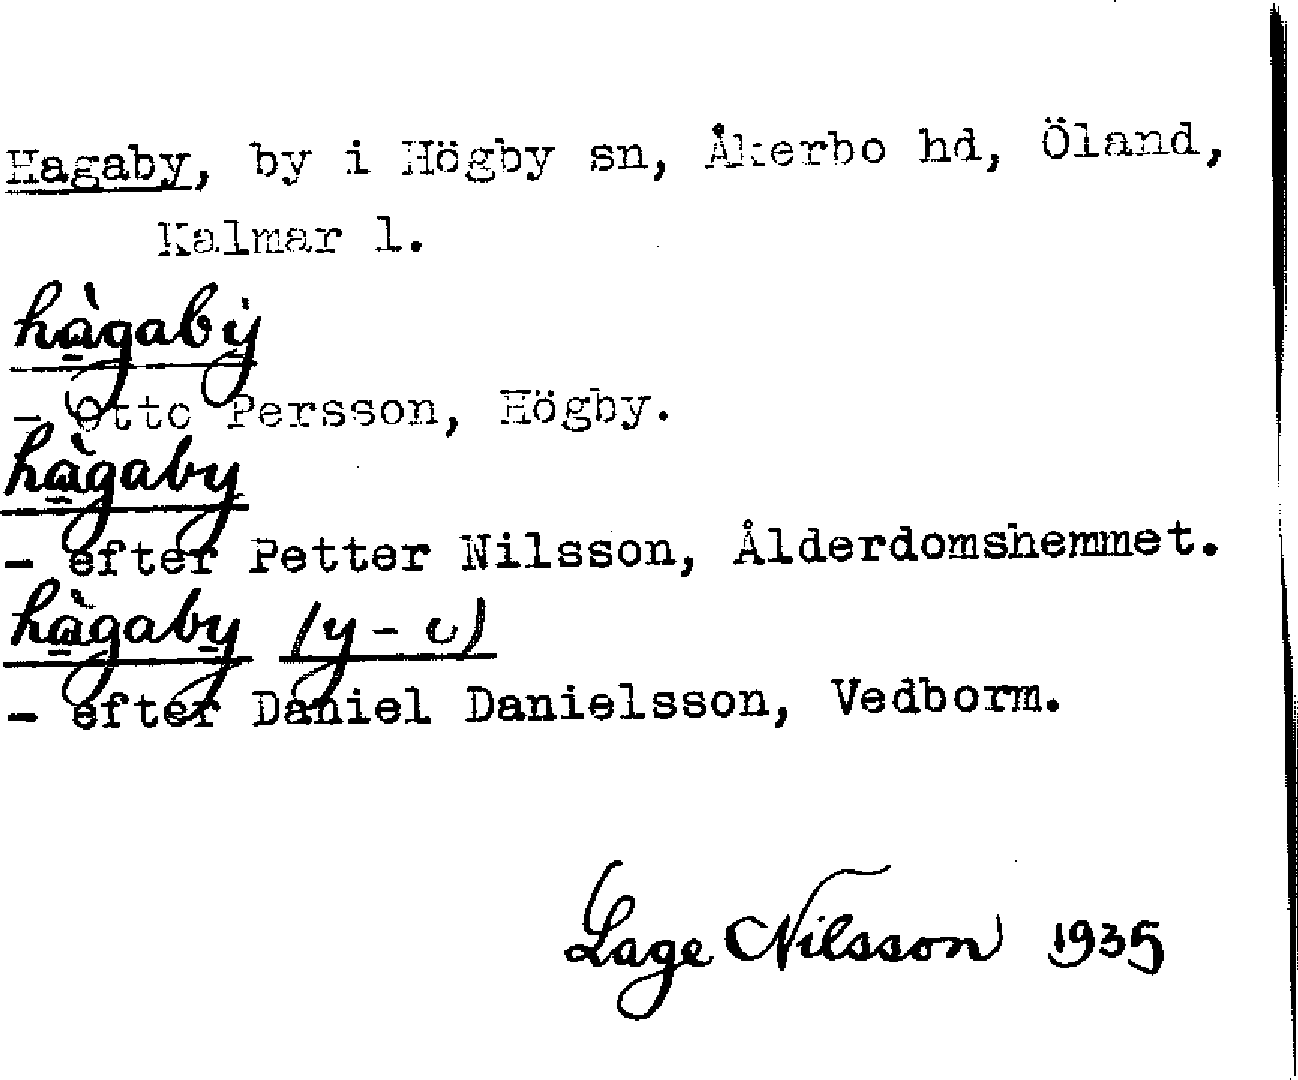 Hagaby, by i Högby sn, Åkerbo hd, Öland,
Kalmar l.
hàgaby
- Otto Persson, Högby.
hàgaby
- efter Petter Nilsson, Ålderdomshemmet.
hàgaby (y - c)
- efter Daniel Danielsson, Vedborm.
Lage Nilsson 1935